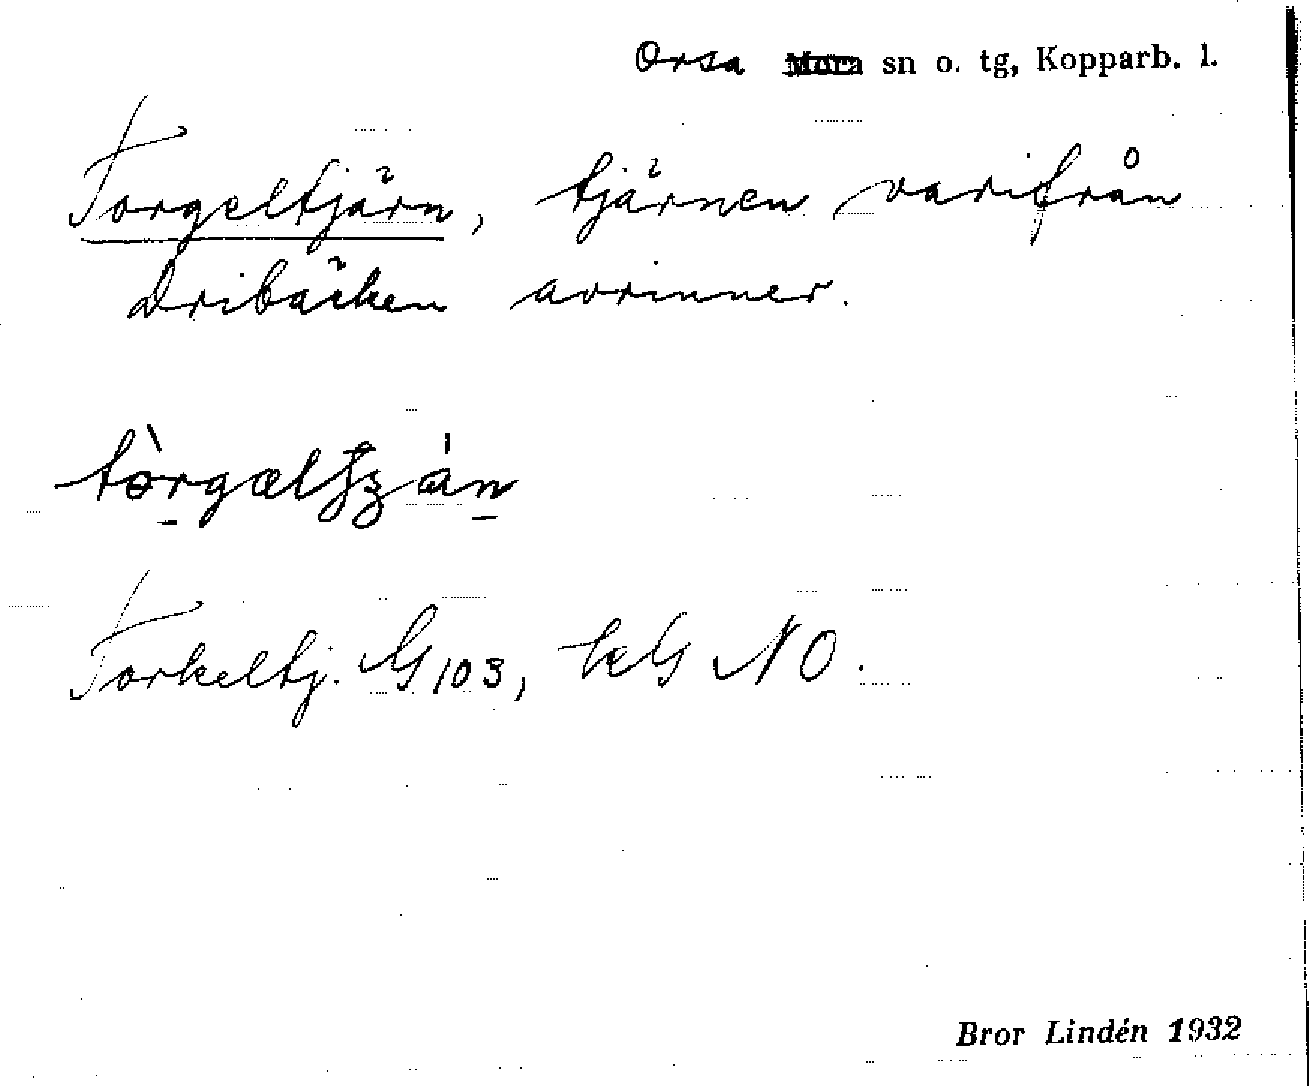 Orsa Mora sn o. tg, Kopparb. l.
Torgeltjärn, tjärnen varifrån
Dribäcken avrinner.
Torkeltj. G 103, kG NO.
Bror Lindén 1932